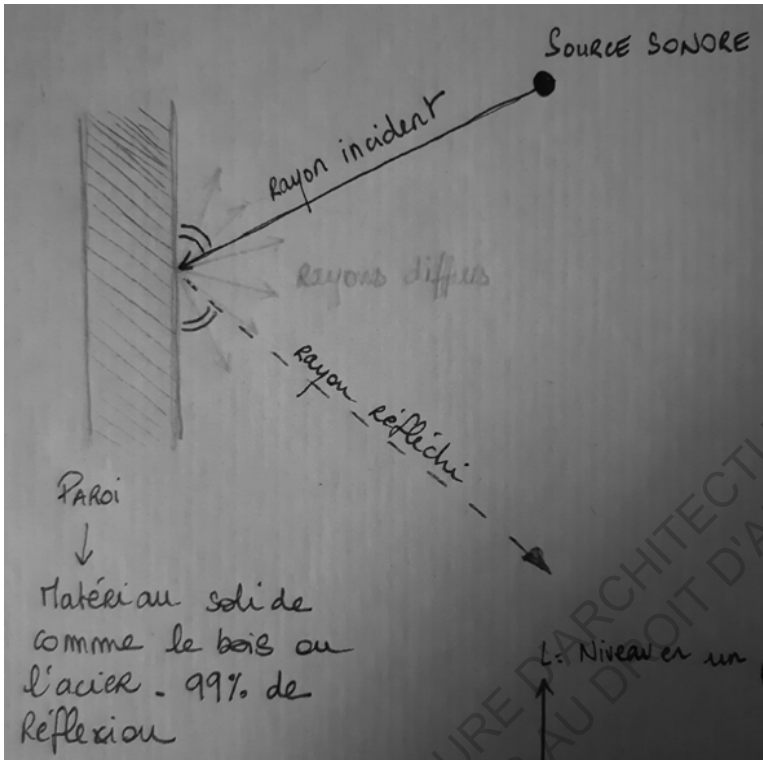 SOURCE SONORE
Rayon incident
Rayons diffus
Rayon réfléchi
PAROI
Matériau solide
comme le bois ou
l'acier - 99% de
Réflexion
L: Niveau en un
URE D'ARCHITECTU
AU DROIT D'A